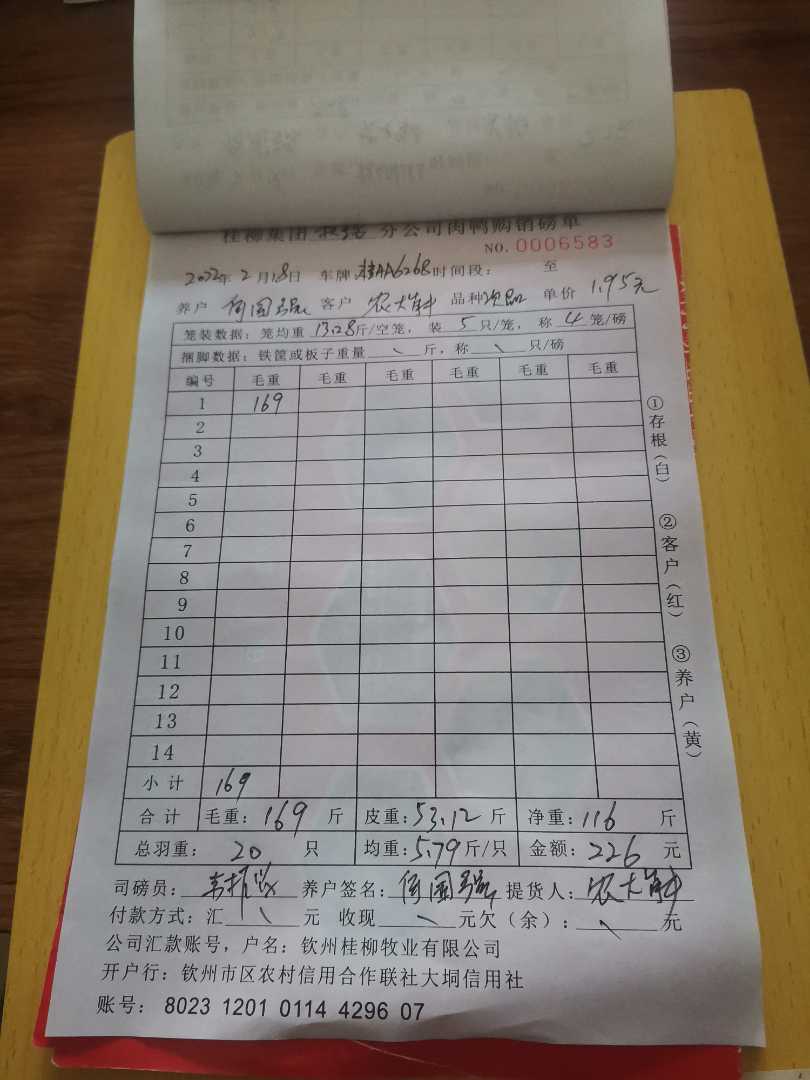 桂柳集团 分公司肉鸭购销磅单
NO. 0006583
2022年2月18日 车牌:桂AA6268时间段: 至
养户 何国强 客户 农大 品种次品 单价 1.95元
笼装数据: 笼均重 13.28斤/空笼, 装 5 只/笼, 称 4 笼/磅
捆脚数据: 铁筐或板子重量 \ 斤, 称 \ 只/磅
编号 毛重 毛重 毛重 毛重 毛重 毛重
1 169
2
3
4
5
6
7
8
9
10
11
12
13
14
小计 169
合计 毛重: 169 斤 皮重: 53.12 斤 净重: 116 斤
总羽重: 20 只 均重: 5.79斤/只 金额: 226 元
司磅员: 韦 养户签名: 何国强 提货人: 农大
付款方式: 汇 \ 元 收现 \ 元欠(余): \ 元
公司汇款账号, 户名: 钦州桂柳牧业有限公司
开户行: 钦州市区农村信用合作联社大垌信用社
账号: 8023 1201 0114 4296 07
①存根(白)
②客户(红)
③养户(黄)